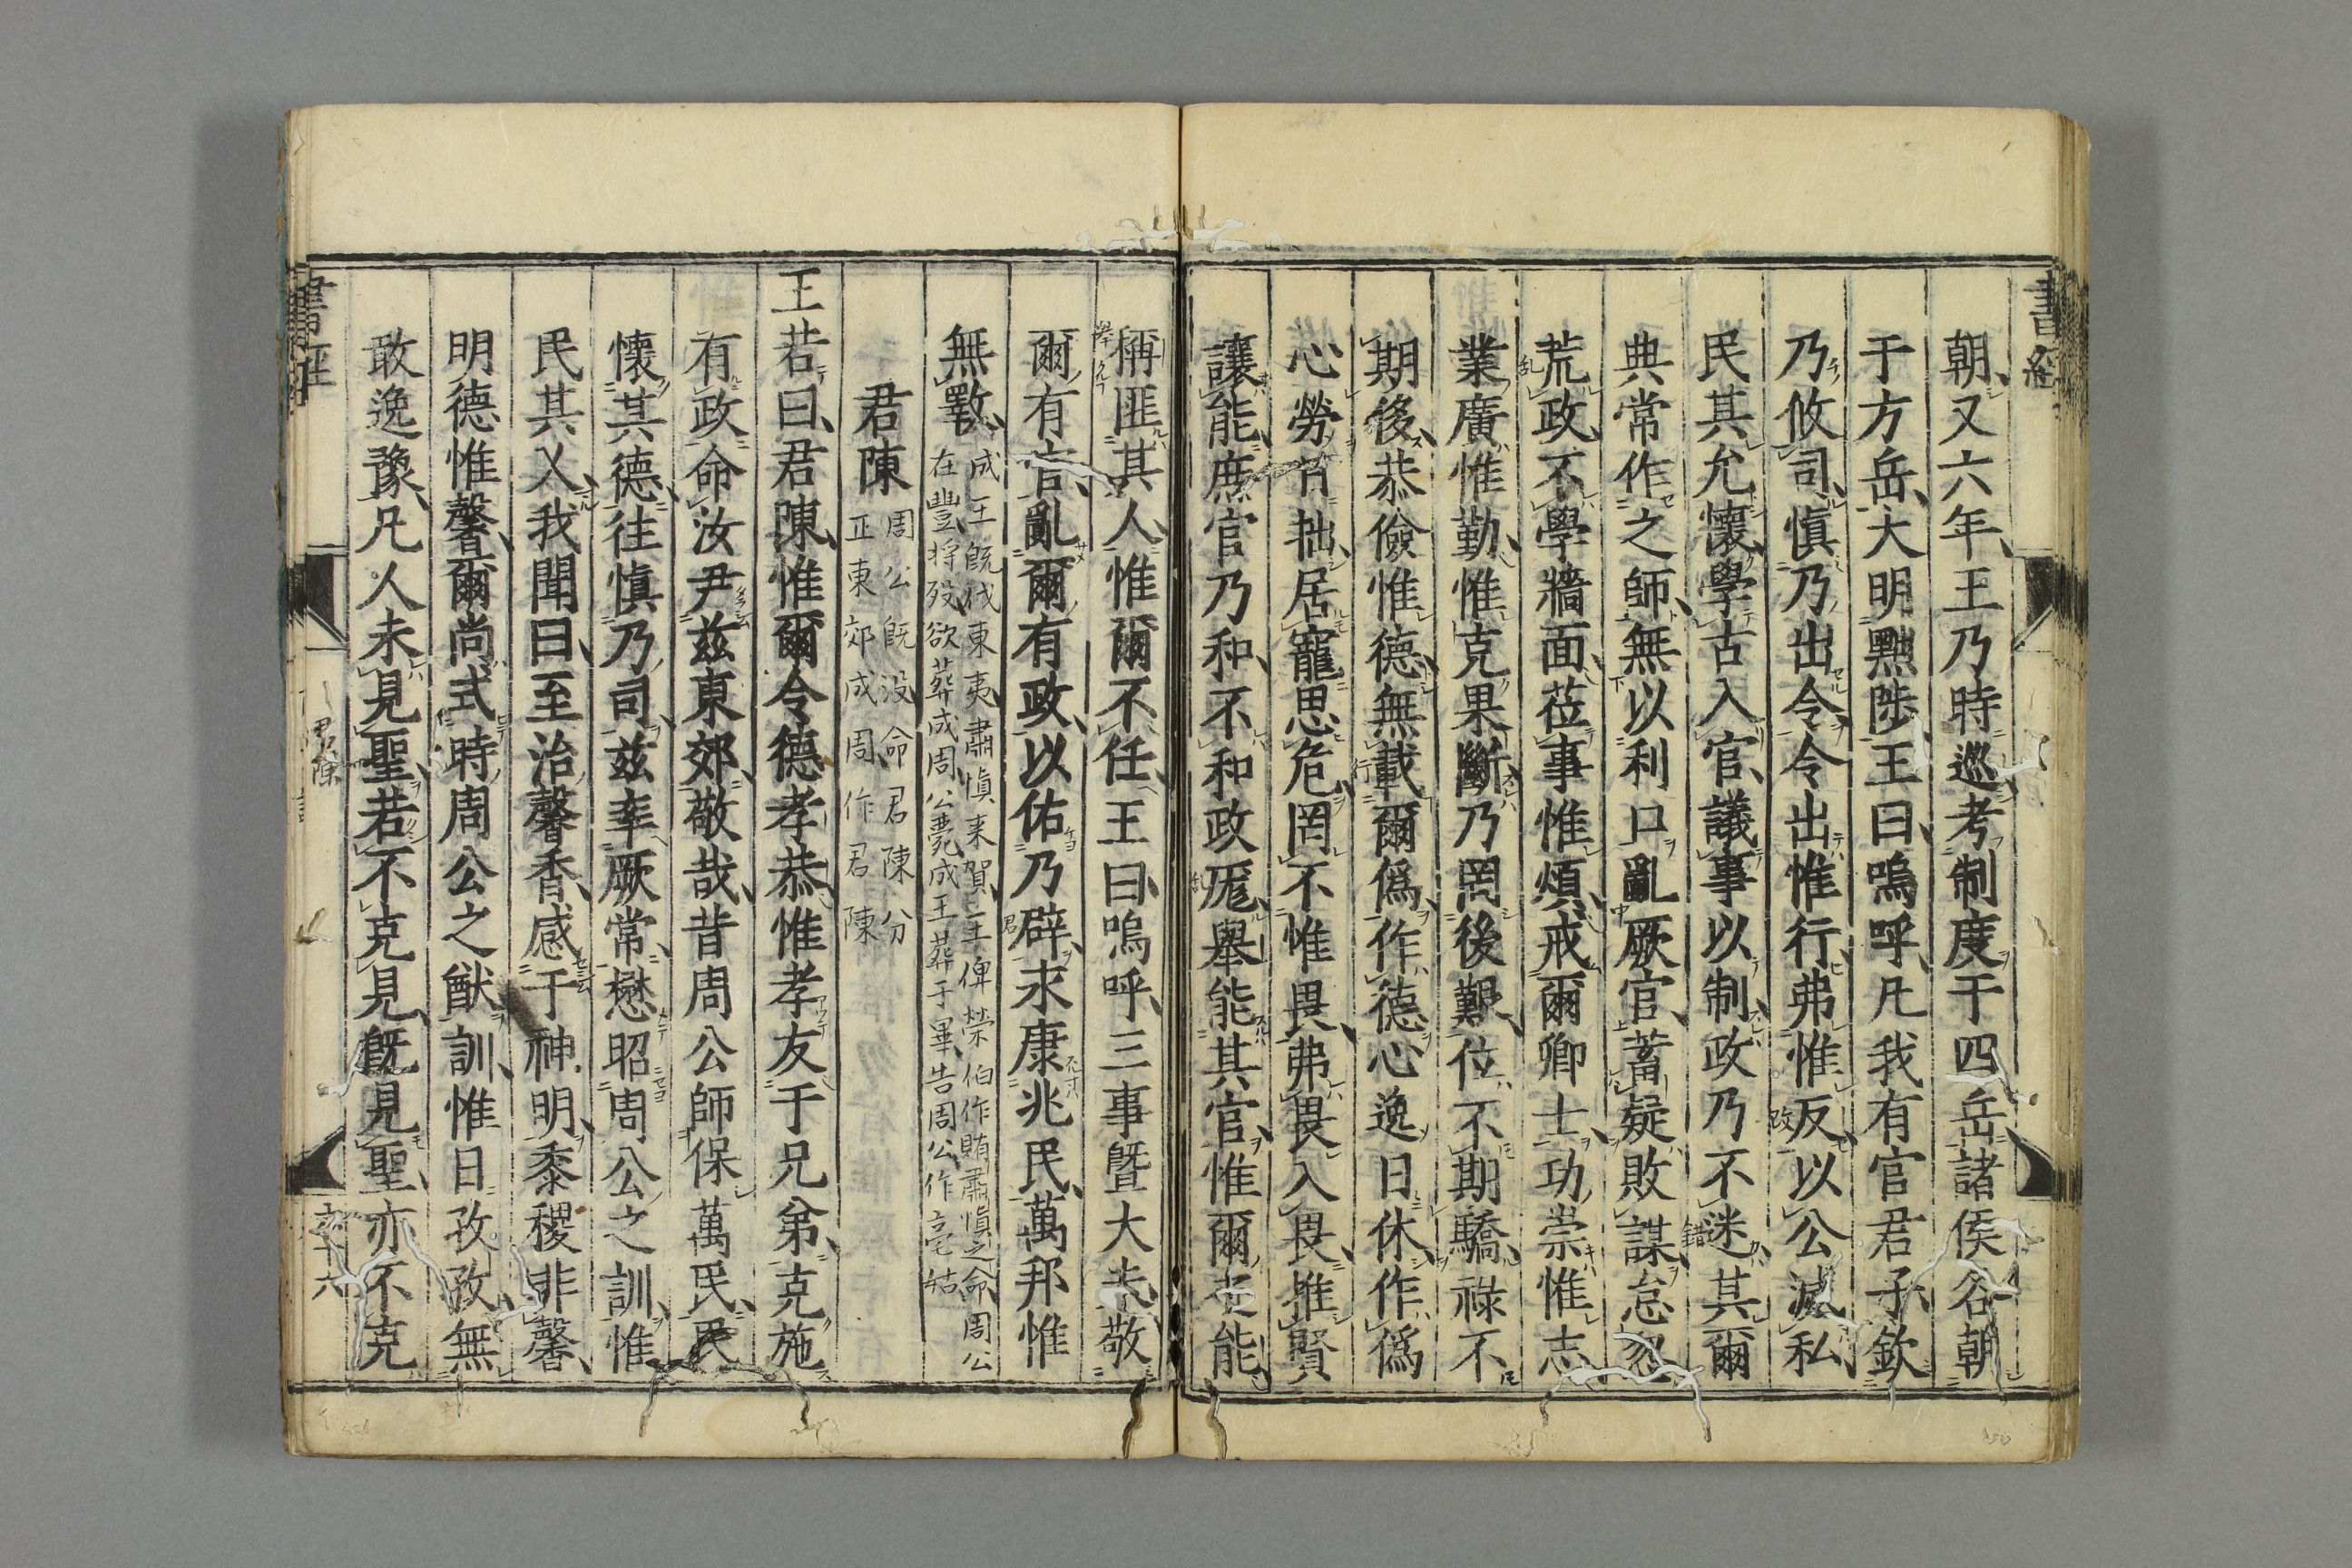 書經
朝又六年王乃時巡考制度于四岳諸侯各朝
于方岳大明黜陟王曰嗚呼凡我有官君子欽
乃攸司慎乃出令令出惟行弗惟反以公滅私
民其允懷學古入官議事以制政乃不迷其爾
典常作之師無以利口亂厥官蓄疑敗謀怠忽
荒政不學牆面莅事惟煩戒爾卿士功崇惟志
業廣惟勤惟克果斷乃罔後艱位不期驕祿不
期侈恭儉惟德無載爾僞作德心逸日休作僞
心勞日拙居寵思危罔不惟畏弗畏入畏推賢
讓能庶官乃和不和政厖舉能其官惟爾之能
稱匪其人惟爾不任王曰嗚呼三事曁大夫敬
爾有官亂爾有政以佑乃辟永康兆民萬邦惟
無斁成王既伐東夷肅慎來賀王俾榮伯作賄肅慎之命周公
在豐將歿欲葬成周公薨成王葬于畢告周公作亳姑
君陳周公既沒命君陳分
正東郊成周作君陳
王若曰君陳惟爾令德孝恭惟孝友于兄弟克施
有政命汝尹茲東郊敬哉昔周公師保萬民民
懷其德往慎乃司茲率厥常懋昭周公之訓惟
民其乂我聞曰至治馨香感于神明黍稷非馨
明德惟馨爾尚式時周公之猷訓惟日孜孜無
敢逸豫凡人未見聖若不克見既見聖亦不克
書經
君陳
六十六